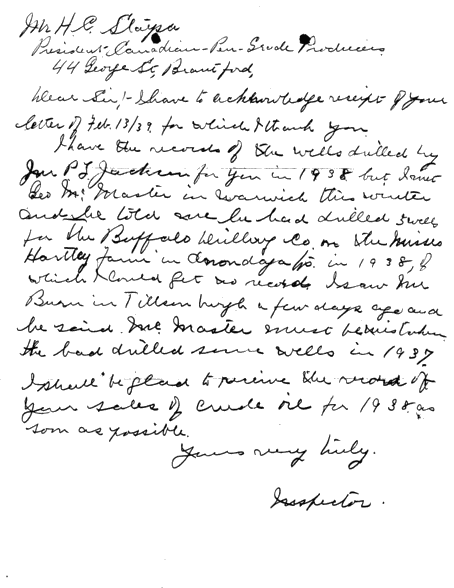 Mr H. C.
President Canadian-Pen-Grade Producers
44 George St, Brantford,
Dear Sir;- I have to acknowledge receipt of your
letter of Feb. 13/39 for which I thank you
I have the records of the wells drilled by
Mr P L Jackson for you in 1938 but I met
Geo Mc Master in Warwick this winter
and he told me he had drilled 3 wells
for the Buffalo Drilling Co. on the Misses
Hartley Farm in Onondaga Tp. in 1938, of
which I could get no records I saw Mr
in Tillsonburgh a few days ago and
he said Mc Master must be mistaken
he had drilled some wells in 1937.
I shall be glad to receive the record of
your sales of crude oil for 1938 as
soon as possible.
Yours very truly.
Inspector.